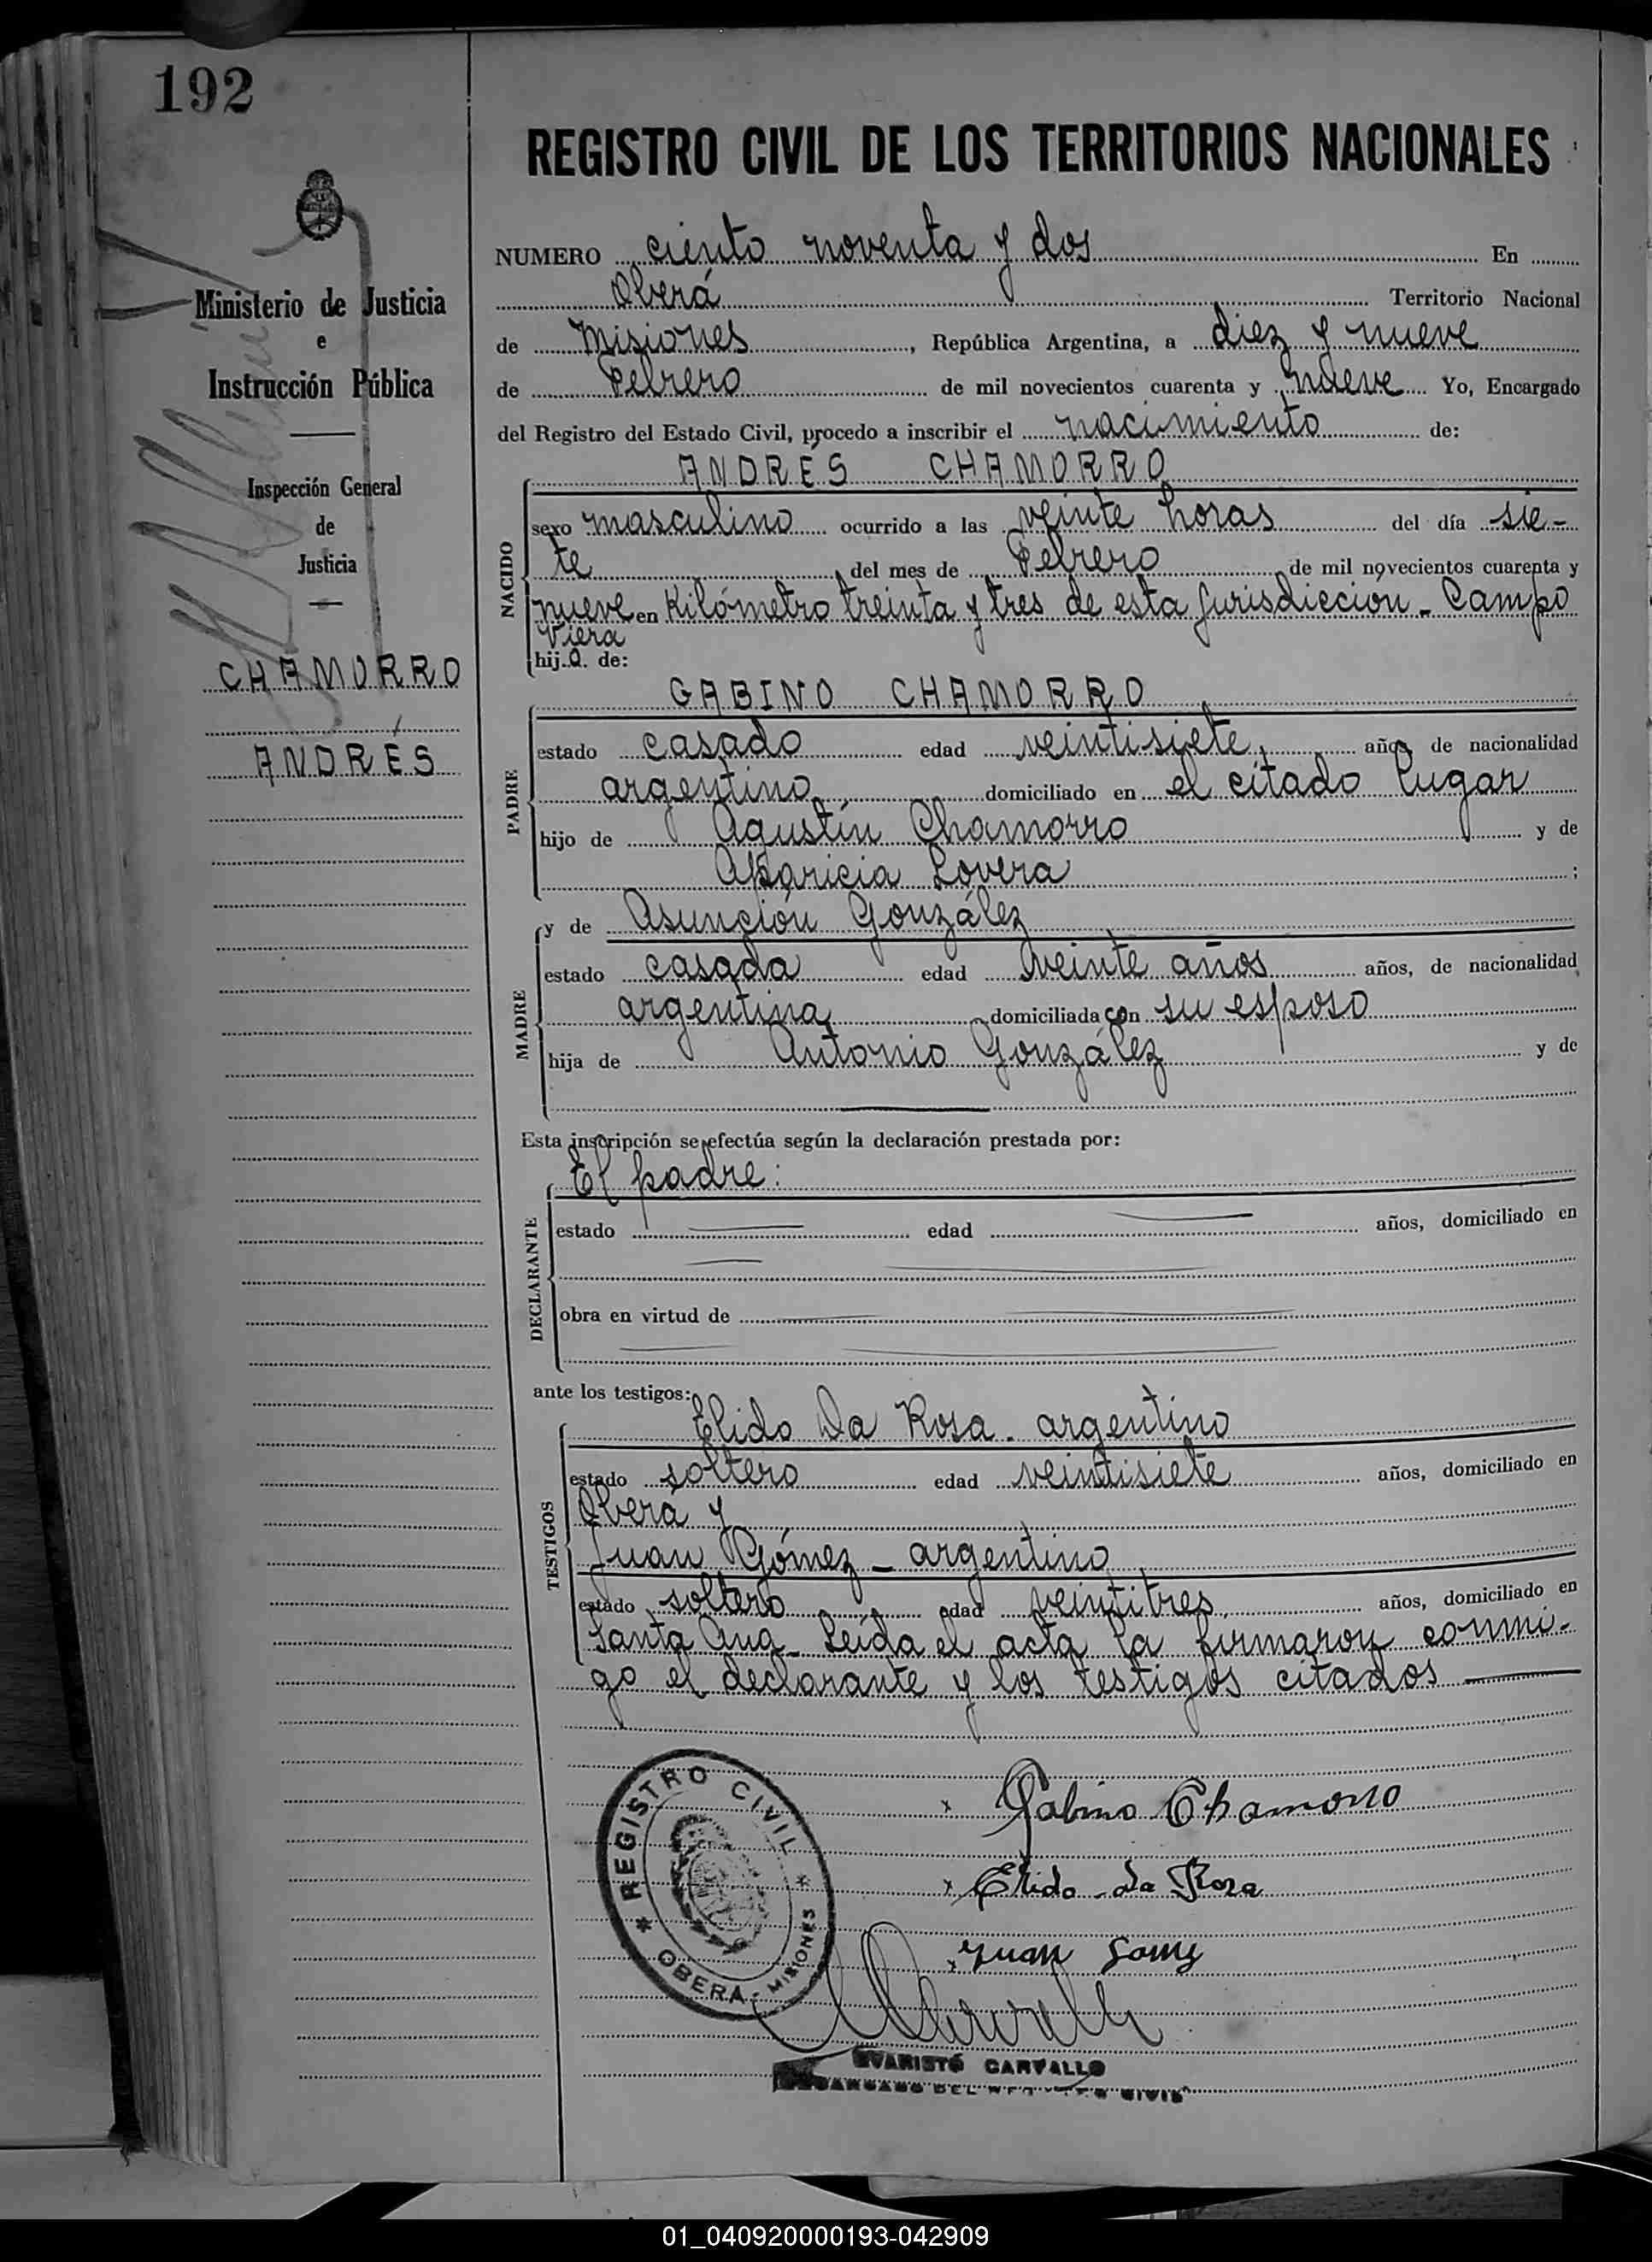 192
REGISTRO CIVIL DE LOS TERRITORIOS NACIONALES
Ministerio de Justicia
e
Instrucción Pública
Inspección General
de
Justicia
CHAMORRO
ANDRÉS
NUMERO ciento noventa y dos En
Oberá Territorio Nacional
de Misiones, República Argentina, a diez y nueve
de Febrero de mil novecientos cuarenta y nueve Yo, Encargado
del Registro del Estado Civil, procedo a inscribir el nacimiento de:
ANDRÉS CHAMORRO
NACIDO
sexo masculino ocurrido a las veinte horas del día sie-
te del mes de Febrero de mil novecientos cuarenta y
nueve en Kilómetro treinta y tres de esta jurisdiccion - Campo
Viera
hijo de:
GABINO CHAMORRO
PADRE
estado casado edad veintisiete años de nacionalidad
argentino domiciliado en el citado lugar
hijo de Agustín Chamorro y de
Aparicia Lovera ;
y de Asunción González
MADRE
estado casada edad veinte años años, de nacionalidad
argentina domiciliada con su esposo
hija de Antonio González y de
Esta inscripción se efectúa según la declaración prestada por:
El padre:
DECLARANTE
estado edad años, domiciliado en
obra en virtud de
ante los testigos:
Elido Da Rosa. argentino
TESTIGOS
estado soltero edad veintisiete años, domiciliado en
Oberá y
Juan Gómez - argentino
estado soltero edad veintitres años, domiciliado en
Santa Ana - Leída el acta la firmaron conmi-
go el declarante y los testigos citados
Gabino Chamorro
Elido da Rosa
Juan Gomez
REGISTRO CIVIL
OBERA - MISIONES
EVARISTO CARVALLO
ENCARGADO DEL REGISTRO CIVIL
01_040920000193-042909